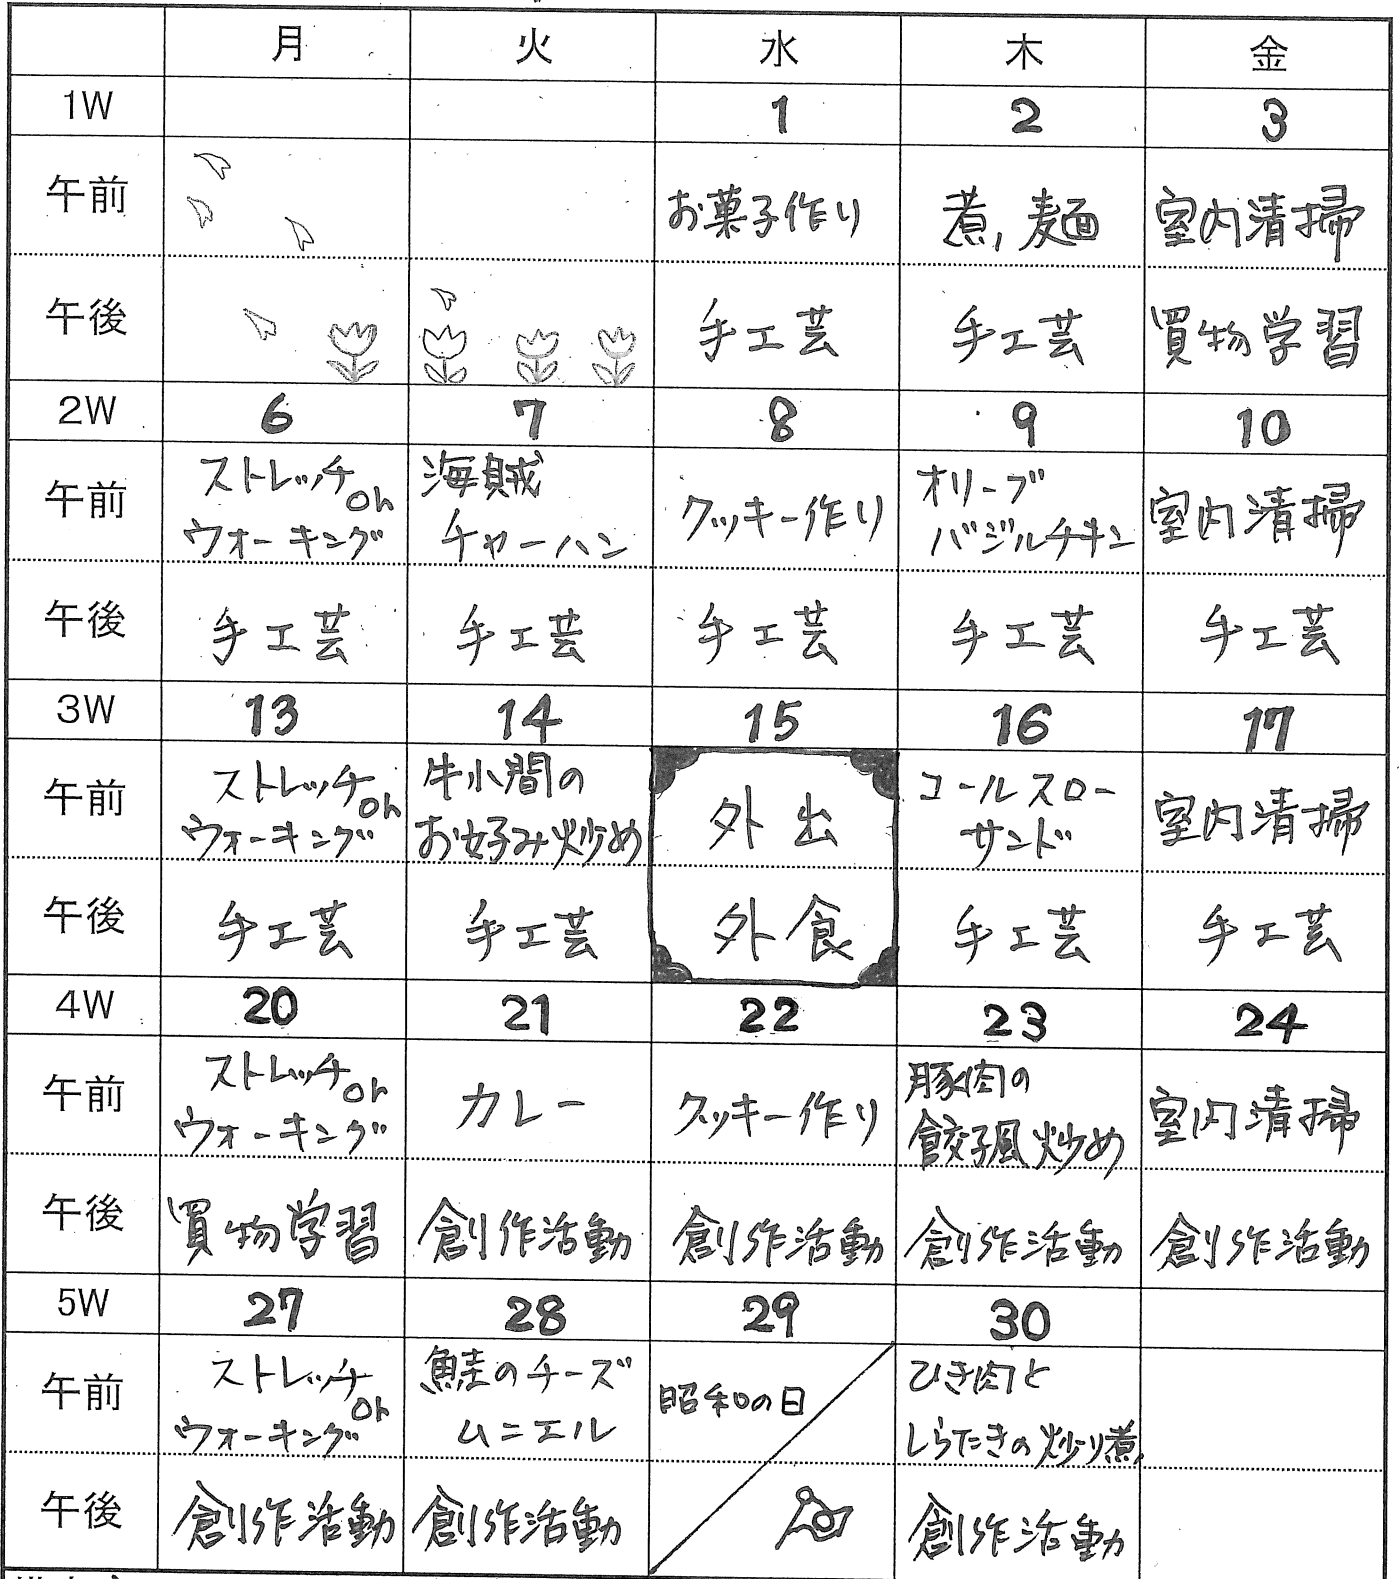 月 火 水 木 金
1W 1 2 3
午前 お菓子作り 煮麺 室内清掃
午後 手工芸 手工芸 買物学習
2W 6 7 8 9 10
午前 ストレッチor ウォーキング 海賊 チャーハン クッキー作り オリーブ バジルチキン 室内清掃
午後 手工芸 手工芸 手工芸 手工芸 手工芸
3W 13 14 15 16 17
午前 ストレッチor ウォーキング 牛小間の お好み炒め 外出 コールスロー サンド 室内清掃
午後 手工芸 手工芸 外食 手工芸 手工芸
4W 20 21 22 23 24
午前 ストレッチor ウォーキング カレー クッキー作り 豚肉の 餃子風炒め 室内清掃
午後 買物学習 創作活動 創作活動 創作活動 創作活動
5W 27 28 29 30
午前 ストレッチor ウォーキング 鮭のチーズ ムニエル 昭和の日 ひき肉と しらたきの炒り煮
午後 創作活動 創作活動 創作活動